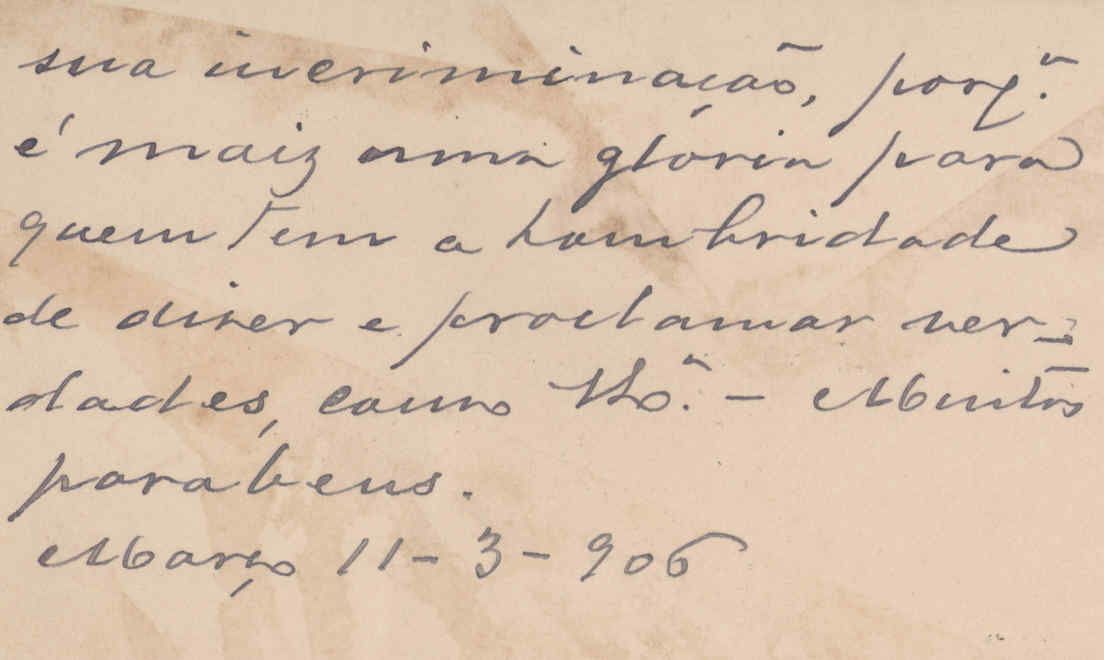 sua incriminação, porq.
é maiz uma glória para
quem tem a hombridade
de diser e proclamar ver=
dades, como V. Ex.ª - Muitos
parabens.
Março 11-3-906